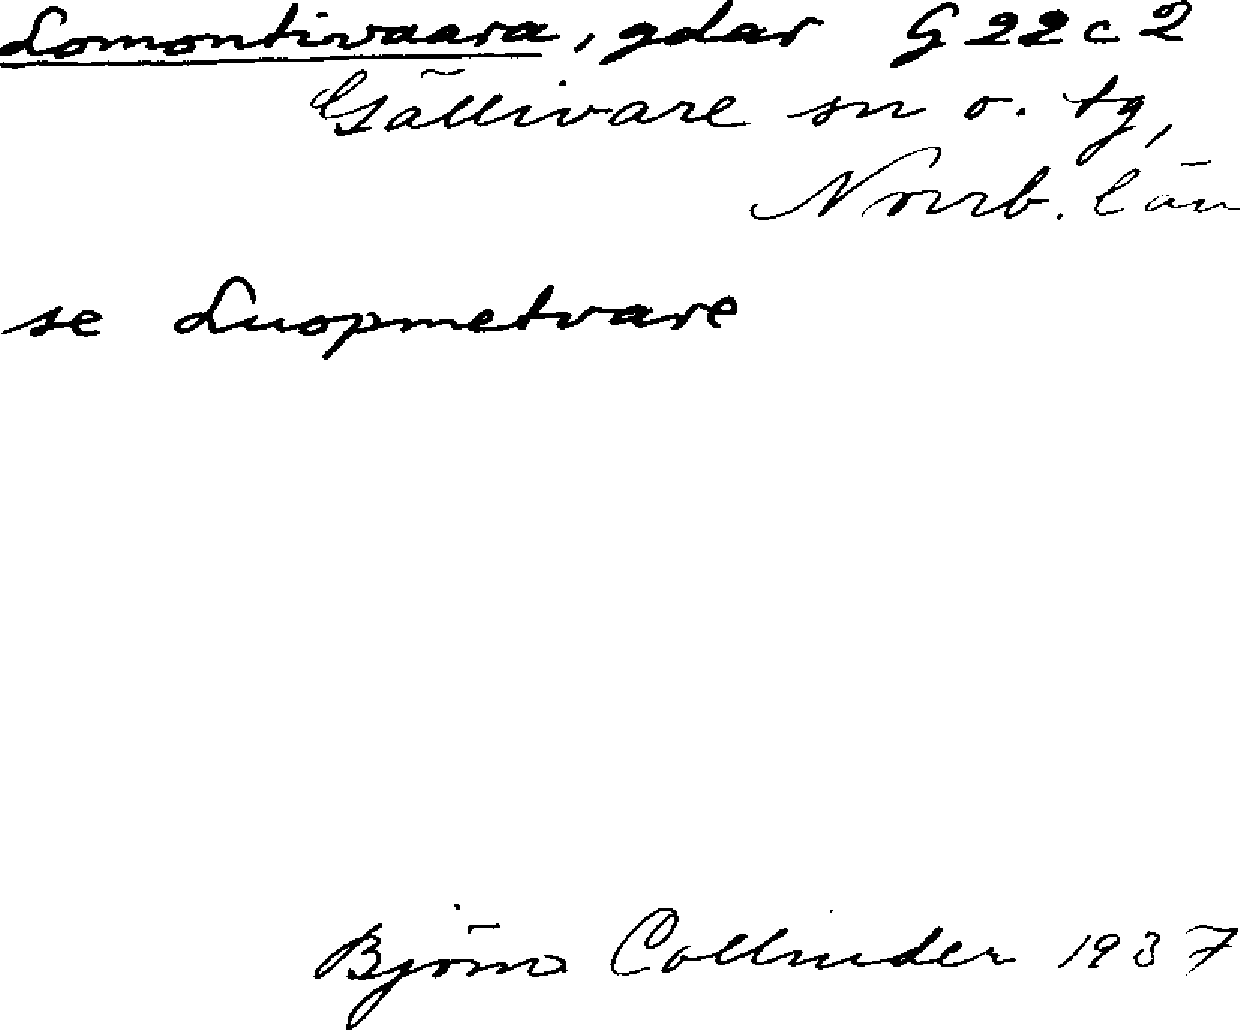 Lomontivaara, gdar G 22 c 2
Gällivare sn o. tg,
Norrb. län
se Luopmetvare
Björn Collinder 1937